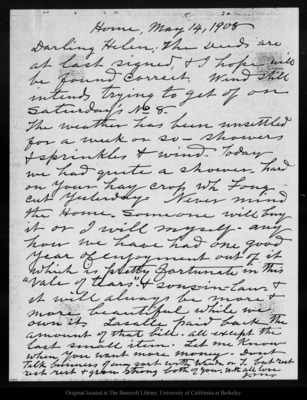 Home, May 14, 1908
Darling Helen, The deeds are
at last signed & I hope will
be found correct. Wand still
intends trying to get off on
Saturday's No 8.
The weather has been unsettled
for a week or so – showers
& sprinkles & wind. Today
we had quite a shower, hard
on your hay crop wh Fong
cut yesterday. Never mind
the Home. Someone will buy
it or I will myself – any
how we have had one good
year of enjoyment out of it
which is pretty fortunate in this
"Vale of tears" & sons-in-law. &
it will always be more &
more beautiful while we
own it. paid back the
amount of that bill – all except the
last small item. Let me know
when you want more money. Dont
talk business of any sort with but rest
rest rest & grow strong both of you, with all love